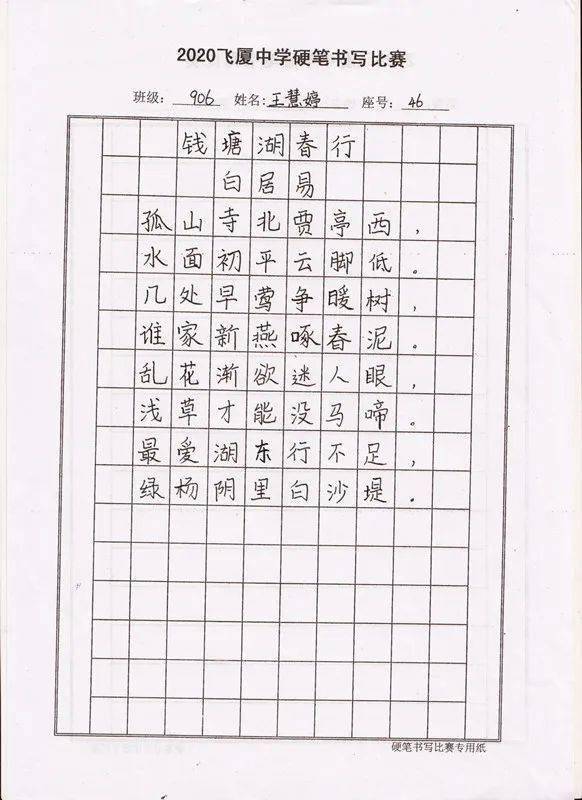 2020飞厦中学硬笔书写比赛
班级: 906 姓名: 王慧婷 座号: 46
钱塘湖春行
白居易
孤山寺北贾亭西,
水面初平云脚低。
几处早莺争暖树,
谁家新燕啄春泥。
乱花渐欲迷人眼,
浅草才能没马啼。
最爱湖东行不足,
绿杨阴里白沙堤。
硬笔书写比赛专用纸